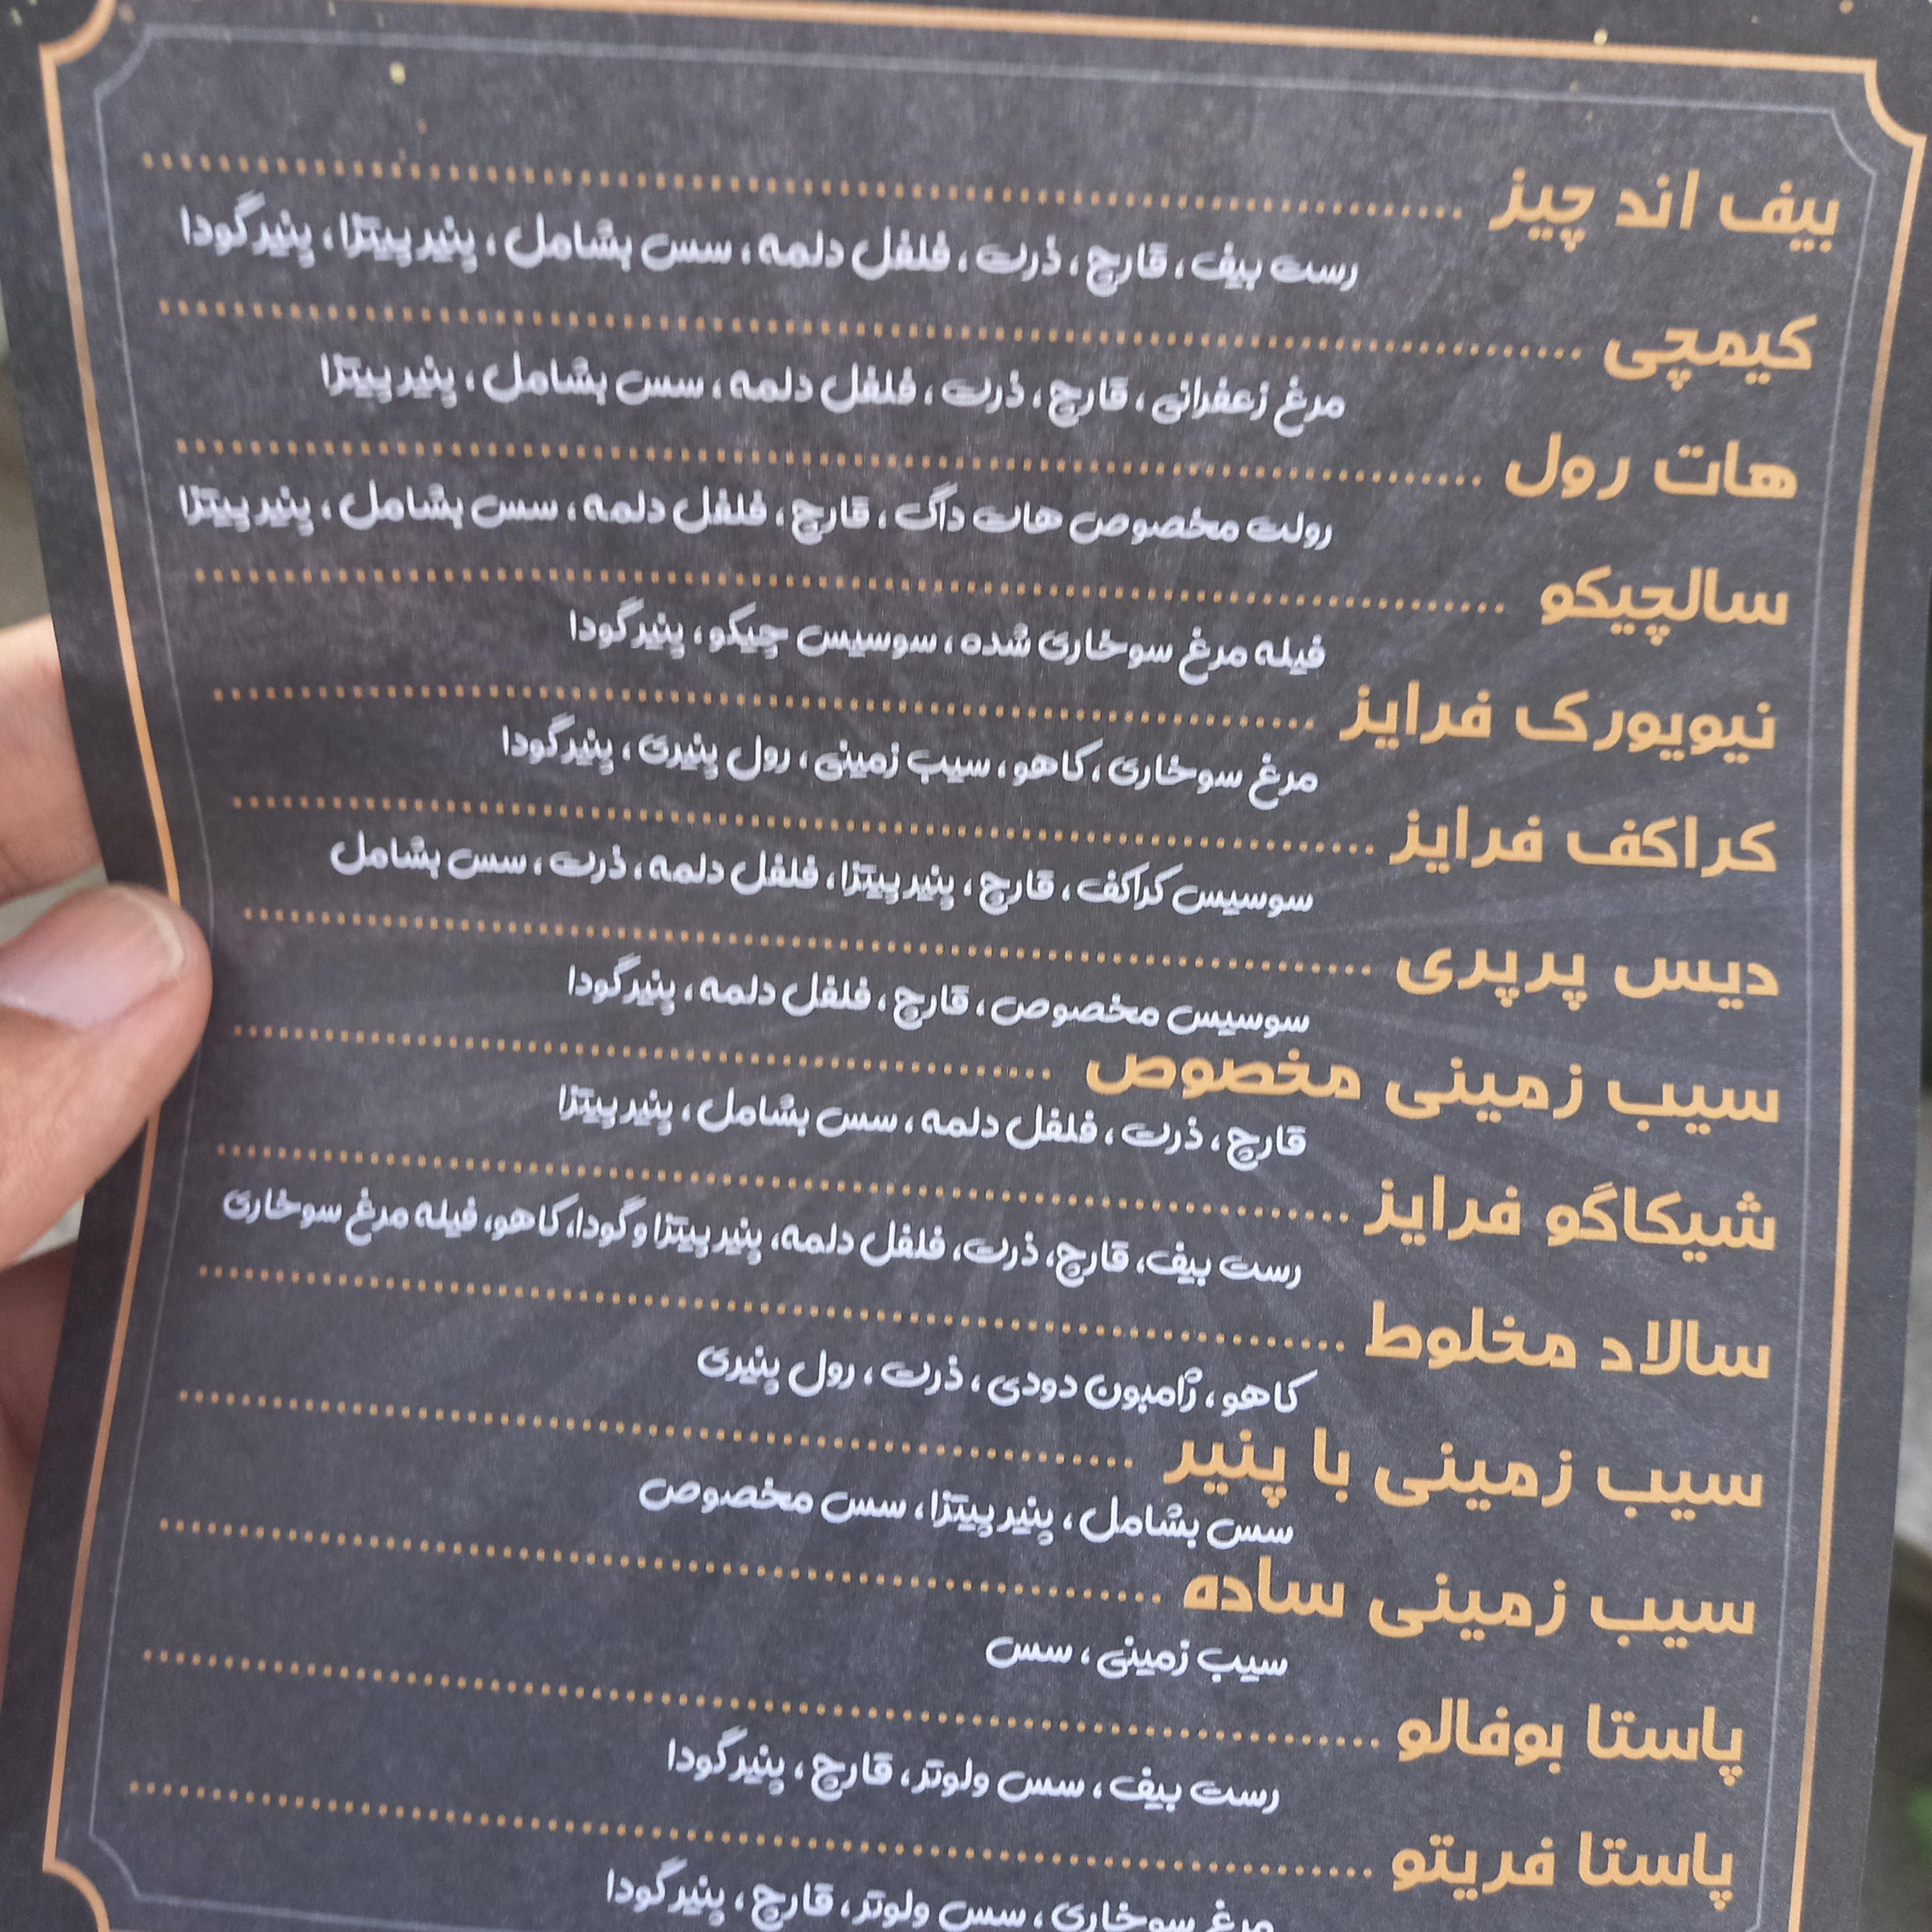 بیف اند چیز
رست بیف، قارچ، ذرت، فلفل دلمه، سس بشامل، پنیر پیتزا، پنیر گودا
کیمچی
مرغ زعفرانی، قارچ، ذرت، فلفل دلمه، سس بشامل، پنیر پیتزا
هات رول
رولت مخصوص هات داگ، قارچ، فلفل دلمه، سس بشامل، پنیر پیتزا
سالچیکو
فیله مرغ سوخاری شده، سوسیس چیکو، پنیر گودا
نیویورک فرایز
مرغ سوخاری، کاهو، سیب زمینی، رول پنیری، پنیر گودا
کراکف فرایز
سوسیس کراکف، قارچ، پنیر پیتزا، فلفل دلمه، ذرت، سس بشامل
دیس پرپری
سوسیس مخصوص، قارچ، فلفل دلمه، پنیر گودا
سیب زمینی مخصوص
قارچ، ذرت، فلفل دلمه، سس بشامل، پنیر پیتزا
شیکاگو فرایز
رست بیف، قارچ، ذرت، فلفل دلمه، پنیر پیتزا و گودا، کاهو، فیله مرغ سوخاری
سالاد مخلوط
کاهو، ژامبون دودی، ذرت، رول پنیری
سیب زمینی با پنیر
سس بشامل، پنیر پیتزا، سس مخصوص
سیب زمینی ساده
سیب زمینی، سس
پاستا بوفالو
رست بیف، سس ولوتر، قارچ، پنیر گودا
پاستا فریتو
مرغ سوخاری، سس ولوتر، قارچ، پنیر گودا